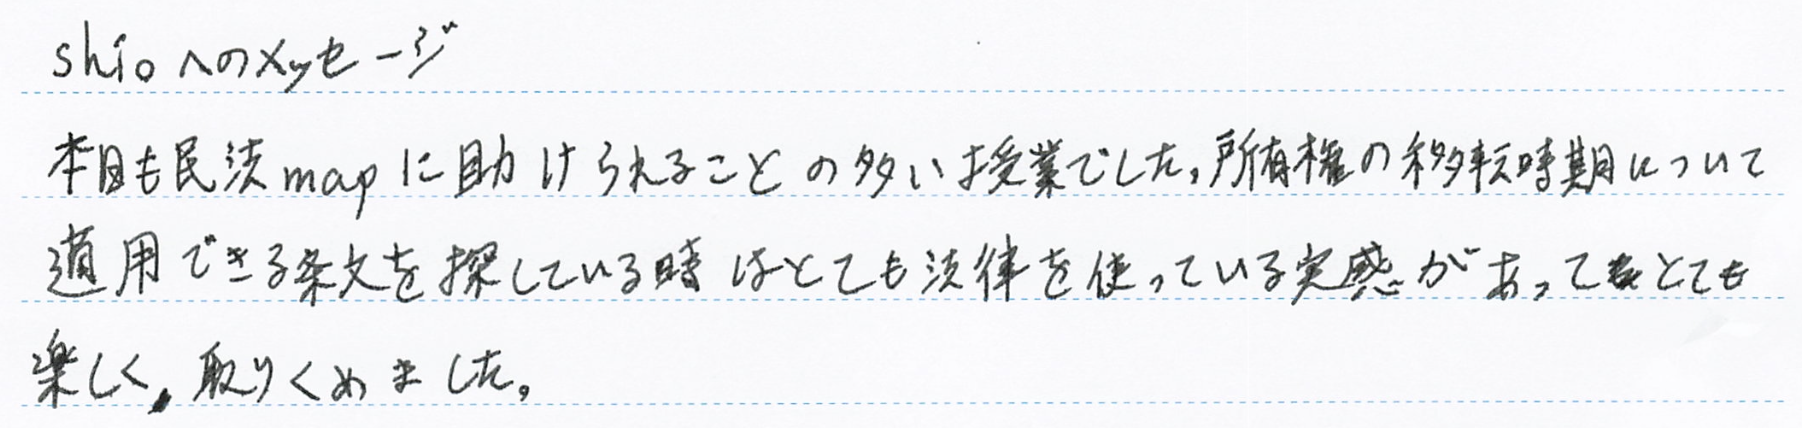 shioへのメッセージ
本日も民法mapに助けられることの多い授業でした。所有権の移転時期について
適用できる条文を探している時はとても法律を使っている実感があってとても
楽しく、取りくめました。